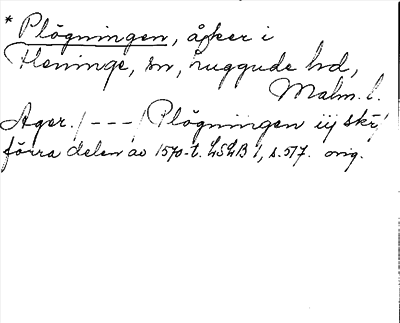 * Plögningen, åker i
Fleninge, sn, Luggude hd,
Malm. l.
Ager. / - - - / Plögningen iij skr /
förra delen av 1570-t. LSLB 1, s. 517. orig.